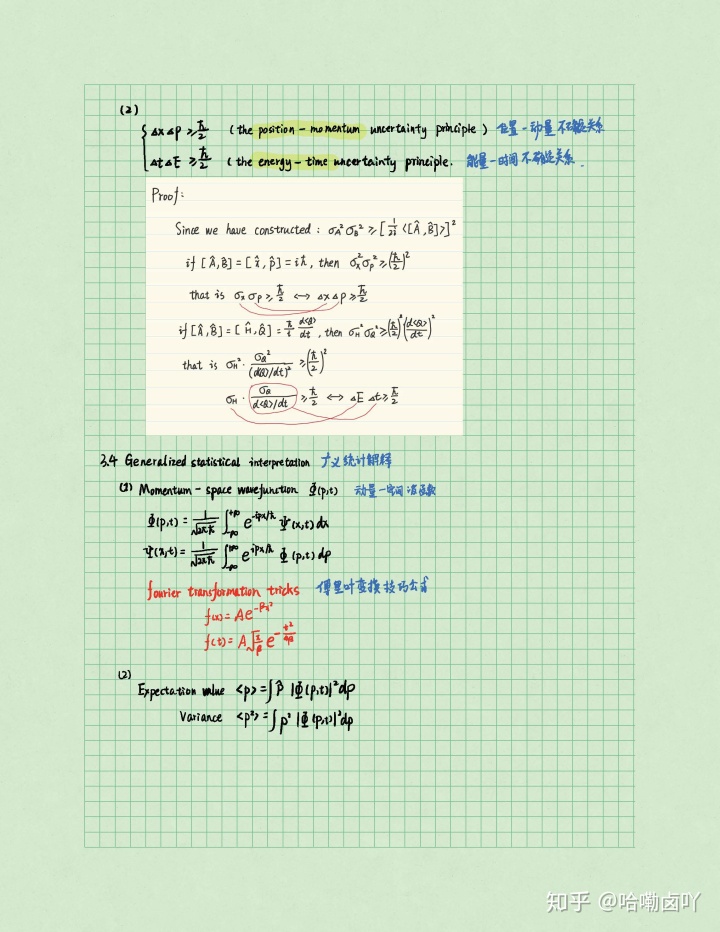 (2)
Δx Δp ≥ ħ/2 (the position-momentum uncertainty principle) 位置-动量 不确定关系
Δt ΔE ≥ ħ/2 (the energy-time uncertainty principle. 能量-时间不确定关系.
Proof:
Since we have constructed: σ_A² σ_B² ≥ [1/2i <[Â,B̂]>]²
if [Â,B̂] = [x̂,p̂] = iħ, then σ_x² σ_p² ≥ (ħ/2)²
that is σ_x σ_p ≥ ħ/2 ↔ Δx Δp ≥ ħ/2
if [Â,B̂] = [Ĥ,Q̂] = ħ/i d<Q>/dt, then σ_H² σ_Q² ≥ (ħ/2)² (d<Q>/dt)²
that is σ_H² · σ_Q²/(d<Q>/dt)² ≥ (ħ/2)²
σ_H · σ_Q/(d<Q>/dt) ≥ ħ/2 ↔ ΔE Δt ≥ ħ/2
3.4 Generalized statistical interpretation 广义统计解释
(1) Momentum-space wavefunction Φ(p,t) 动量-空间 波函数
Φ(p,t) = 1/√(2πħ) ∫_{-∞}^{+∞} e^{-ipx/ħ} Ψ(x,t) dx
Ψ(x,t) = 1/√(2πħ) ∫_{-∞}^{+∞} e^{ipx/ħ} Φ(p,t) dp
fourier transformation tricks 傅里叶变换技巧公式
f(x) = A e^{-βx²}
f(t) = A √(π/β) e^{-t²/4β}
(2)
Expectation value <p> = ∫ p̂ |Φ(p,t)|² dp
Variance <p²> = ∫ p² |Φ(p,t)|² dp
知乎 @哈嘞卤吖